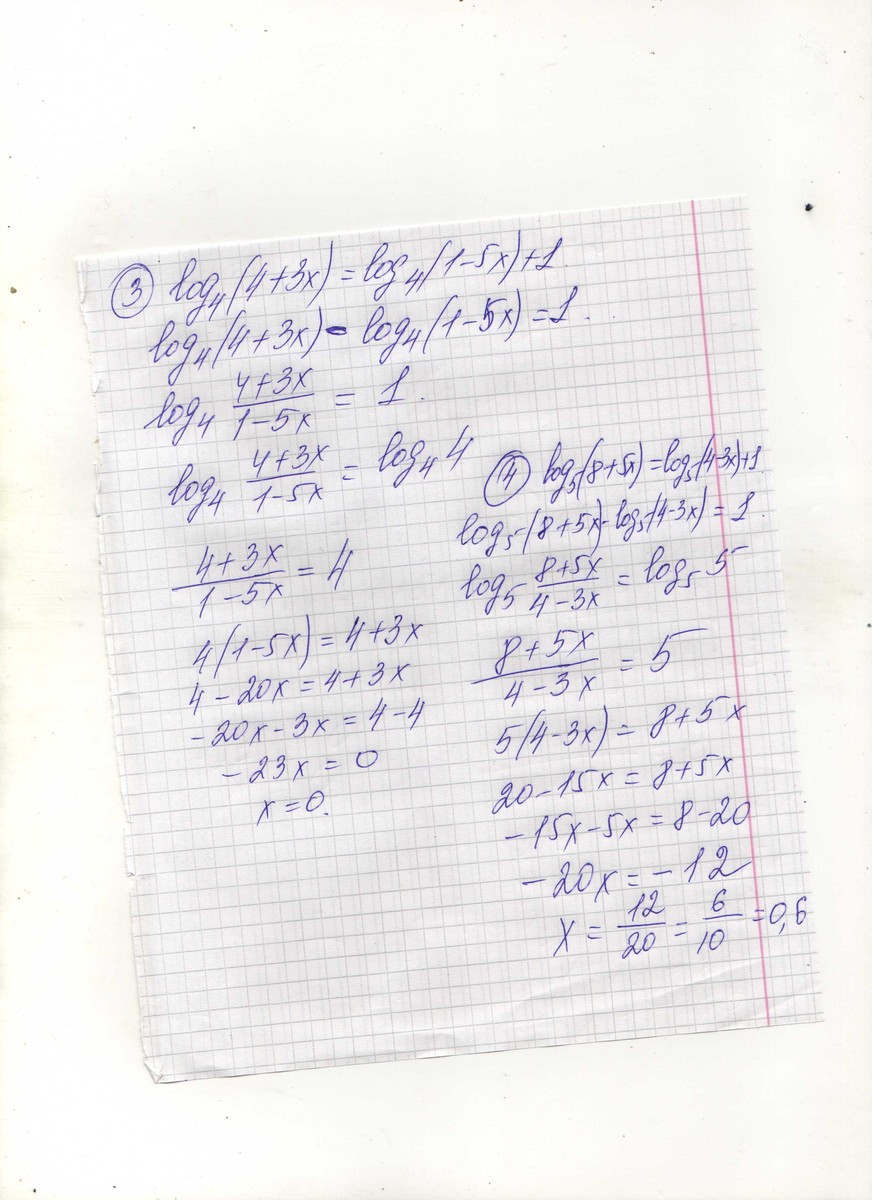 ③ log₄(4+3x) = log₄(1-5x)+1
log₄(4+3x) - log₄(1-5x) = 1.
log₄ (4+3x)/(1-5x) = 1.
log₄ (4+3x)/(1-5x) = log₄ 4
(4+3x)/(1-5x) = 4
4(1-5x) = 4+3x
4-20x = 4+3x
-20x-3x = 4-4
-23x = 0
x = 0.
④ log₅(8+5x) = log₅(4-3x)+1
log₅(8+5x)-log₅(4-3x) = 1
log₅ (8+5x)/(4-3x) = log₅ 5
(8+5x)/(4-3x) = 5
5(4-3x) = 8+5x
20-15x = 8+5x
-15x-5x = 8-20
-20x = -12
x = 12/20 = 6/10 = 0,6